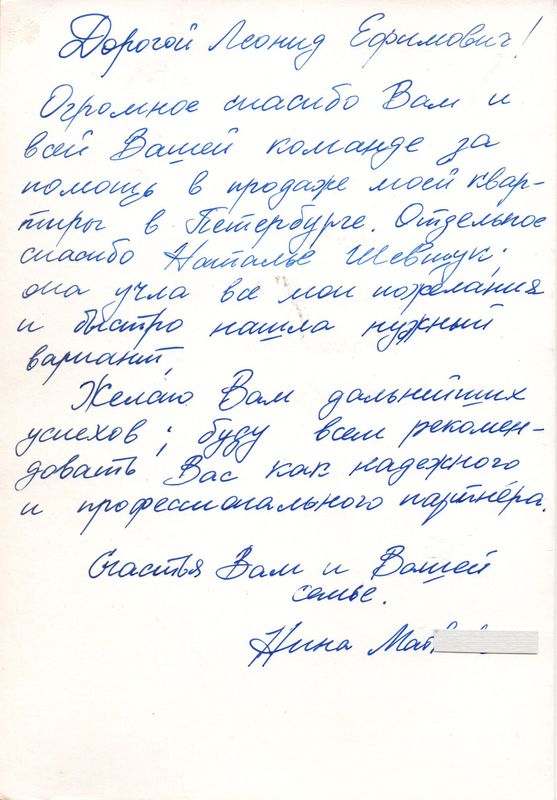 Дорогой Леонид Ефимович!
Огромное спасибо Вам и
всей Вашей команде за
помощь в продаже моей квар-
тиры в Петербурге. Отдельное
спасибо Наталье Шевчук;
она учла все мои пожелания
и быстро нашла нужный
вариант.
Желаю Вам дальнейших
успехов; буду всем рекомен-
довать Вас как надежного
и профессионального партнёра.
Счастья Вам и Вашей
семье.
Нина